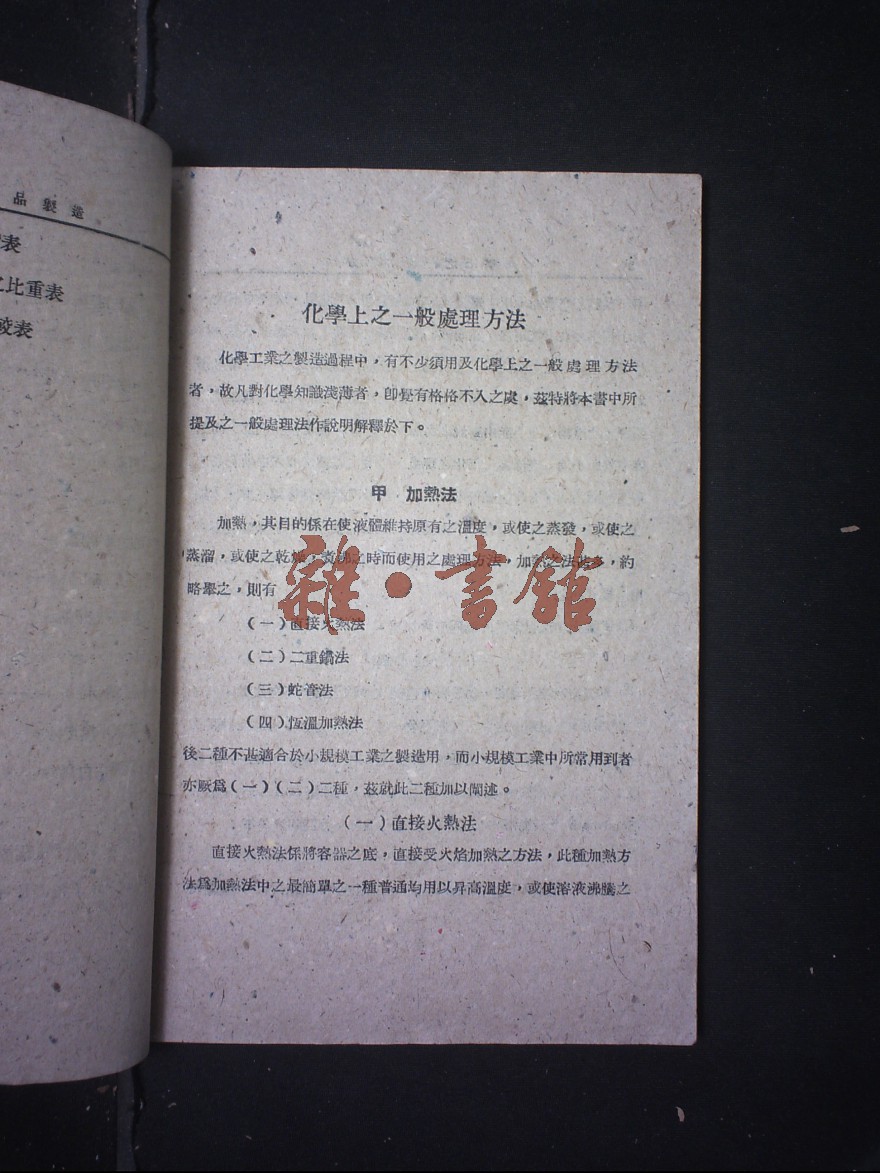 品製造
表
之比重表
度表
化學上之一般處理方法
化學工業之製造過程中，有不少須用及化學上之一般處理方法
者，故凡對化學知識淺薄者，卽覺有格格不入之處，茲特將本書中所
提及之一般處理法作說明解釋於下。
甲　加熱法
加熱，其目的係在使液體維持原有之溫度，或使之蒸發，或使之
蒸溜，或使之乾燥，煑沸之時而使用之處理方法，加熱之法甚多，約
略舉之，則有
雜·書館
（一）直接火熱法
（二）二重鍋法
（三）蛇管法
（四）恆溫加熱法
後二種不甚適合於小規模工業之製造用，而小規模工業中所常用到者
亦厥爲（一）（二）二種，茲就此二種加以闡述。
（一）直接火熱法
直接火熱法係將容器之底，直接受火焰加熱之方法，此種加熱方
法爲加熱法中之最簡單之一種普通均用以昇高溫度，或使溶液沸騰之